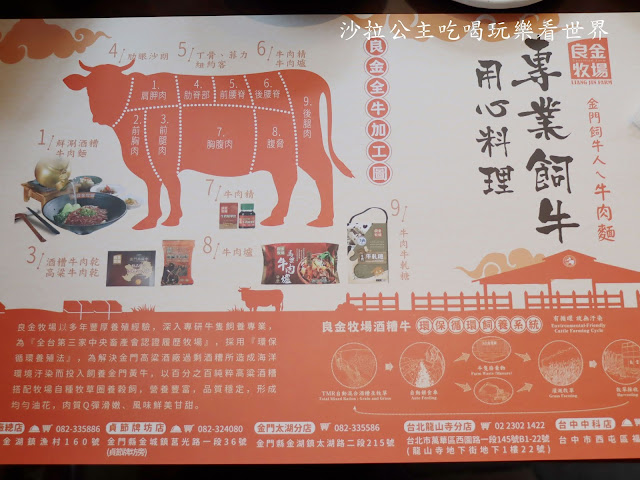 沙拉公主吃喝玩樂看世界
良金牧場
LIANG JIN FARM
專業飼牛
用心料理
金門飼牛人ㄟ牛肉麵
良金全牛加工圖
4/ 肋眼沙朗
5/ 丁骨、菲力
紐約客
6/ 牛肉精
牛肉爐
1. 肩胛肉
4. 肋脊部
5. 前腰脊
6. 後腰脊
9. 後腿肉
2. 前胸肉
3. 前腿肉
7. 胸腹肉
8. 腹脅
1/ 鮮涮酒糟
牛肉麵
7/ 牛肉精
8/ 牛肉爐
9/ 牛肉牛軋糖
3/ 酒糟牛肉乾
高粱牛肉乾
良金牧場以多年豐厚養殖經驗，深入專研牛隻飼養專業，
為『全台第三家中央畜產會認證履歷牧場』，採用『環保
循環養殖法』，為解決金門高粱酒廠過剩酒糟所造成海洋
環境汙染而投入飼養金門黃牛，以百分之百純粹高粱酒糟
搭配牧場自種牧草固養穀飼，營養豐富，品質穩定，形成
均勻油花，肉質Q彈滑嫩、風味鮮美甘甜。
良金牧場酒糟牛 環保循環飼養系統
有機環 核無汙染
Environmental-Friendly
Cattle Farming Cycle
TMR自動混合酒糟及牧草
自動餵食
牛隻排泄物
灌溉牧草
牧草採收
總店 082-335886
金湖鎮漁村160號
貞節牌坊店 082-324080
金門縣金城鎮莒光路一段36號
(貞節牌坊旁)
金門太湖分店 082-335586
金門縣金湖鎮太湖路二段215號
台北龍山寺分店 02 2302 1422
台北市萬華區西園路一段145號B1-22號
(龍山寺地下街地下1樓22號)
台中中科店
台中市西屯區福